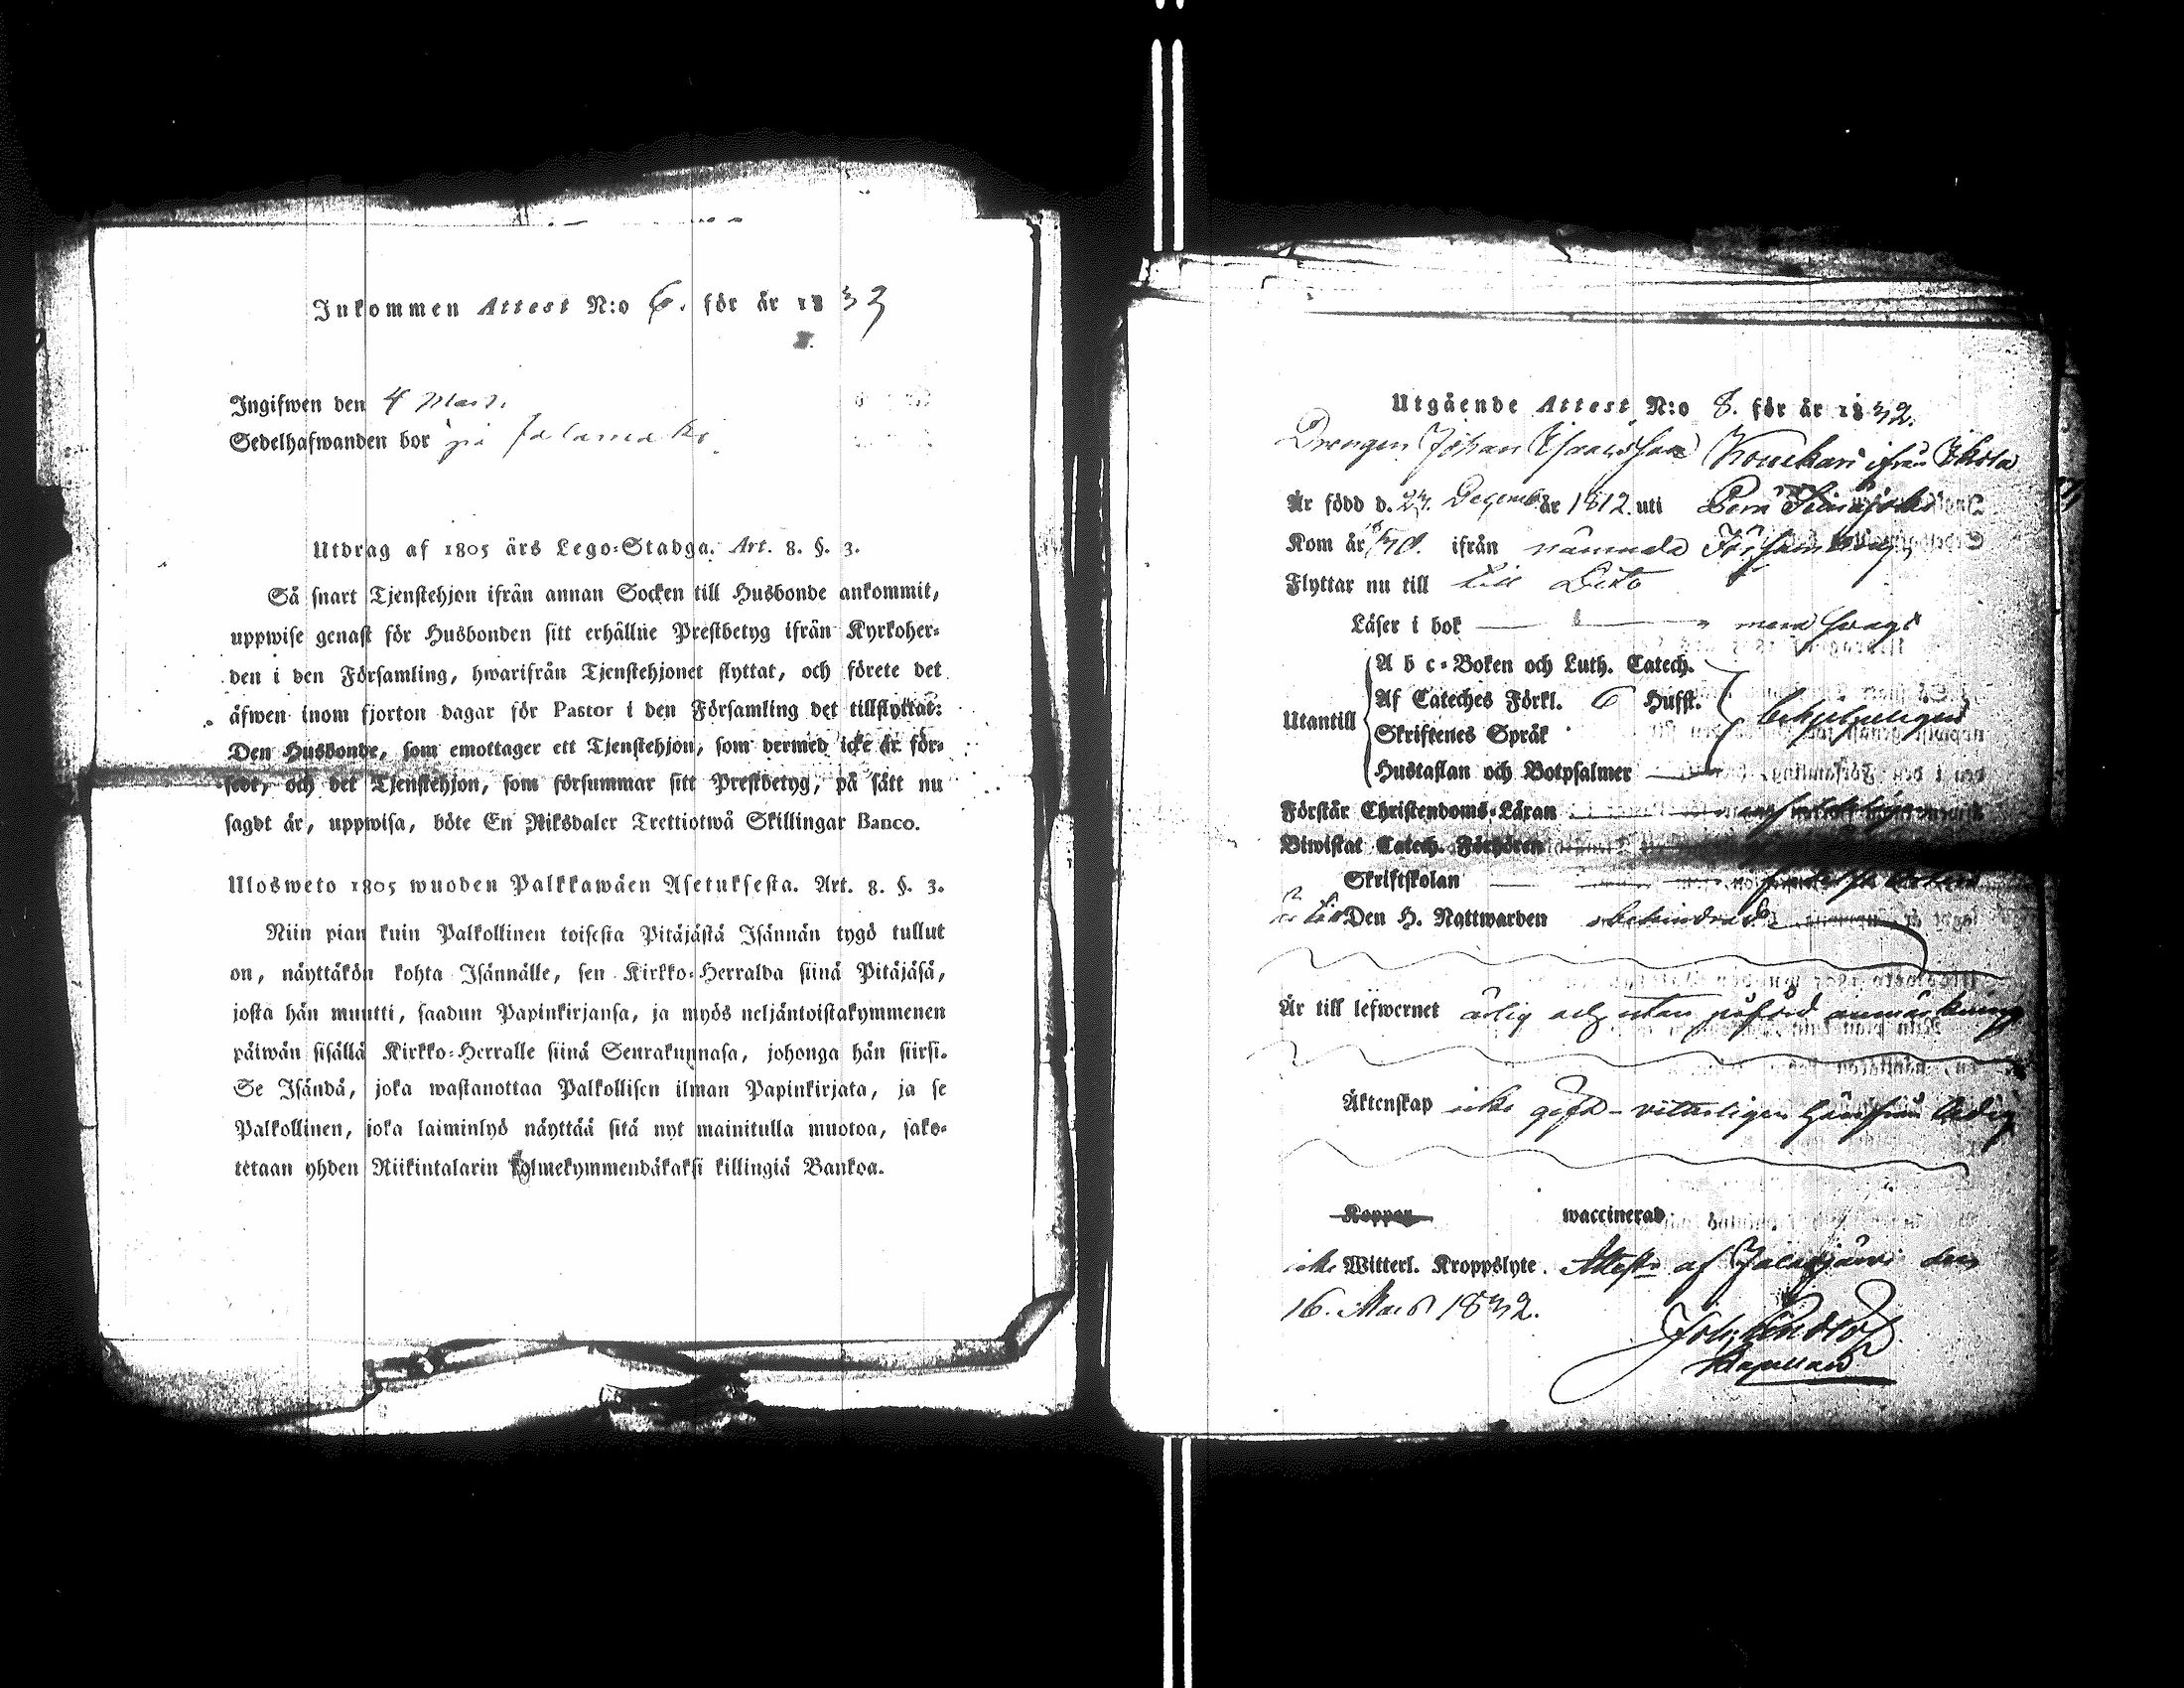 Inkommen Attest N:o 6. för år 1833
Ingifwen den 4 Mart.
Sedelhafwanden bor på Jalamäki
Utdrag af 1805 års Lego-Stadga. Art. 8. §. 3.
Så snart Tjenstehjon ifrån annan Socken till Husbonde ankommit,
uppwise genast för Husbonden sitt erhållne Prestbetyg ifrån Kyrkoher-
den i den Församling, hwarifrån Tjenstehjonet flyttat, och förete det
äfwen inom fjorton dagar för Pastor i den Församling det tillflyttat:
Den Husbonde, som emottager ett Tjenstehjon, som dermed icke är för-
sedt, och det Tjenstehjon, som försummar sitt Prestbetyg, på sätt nu
sagdt är, uppwisa, böte En Riksdaler Trettiotwå Skillingar Banco.
Ulosweto 1805 wuoden Palkkawäen Asetuksesta. Art. 8. §. 3.
Niin pian kuin Palkollinen toisesta Pitäjästä Isännän tygö tullut
on, näyttäkön kohta Isännälle, sen Kirkko-Herralda siinä Pitäjäsä,
josta hän muutti, saadun Papinkirjansa, ja myös neljäntoistakymmenen
päiwän sisällä Kirkko-Herralle siinä Seurakunnasa, johonga hän siirsi.
Se Isändä, joka wastanottaa Palkollisen ilman Papinkirjata, ja se
Palkollinen, joka laiminlyö näyttää sitä nyt mainitulla muotoa, sako-
tetaan yhden Riikintalarin kolmekymmendäkaksi killingiä Bankoa.
Utgående Attest N:o 8. för år 1832.
Drengen Johan Isaacsson Kouckari ifrån Ikola
Är född d. 23. Decemb. år 1812. uti Seinäjoki
Kom år ifrån nämnda Församling
Flyttar nu till till Dito
Läser i bok men svagt
Utantill
A b c-Boken och Luth. Catech.
Af Cateches Förkl. 6 Hufst.
Skriftenes Språk
Hustaflan och Botpsalmer
Förstår Christendoms-Läran
Biwistat Catech. Förhören
Skriftskolan
Den H. Nattwarden obehindrad
Är till lefwernet ärlig och utan påförd anmärkning
Äktenskap icke gift - veterligen härifrån ledig
Koppor waccinerad
icke Witterl. Kroppslyte. Attest. af Jalasjärvi den
16. Mars 1832.
Kapellan